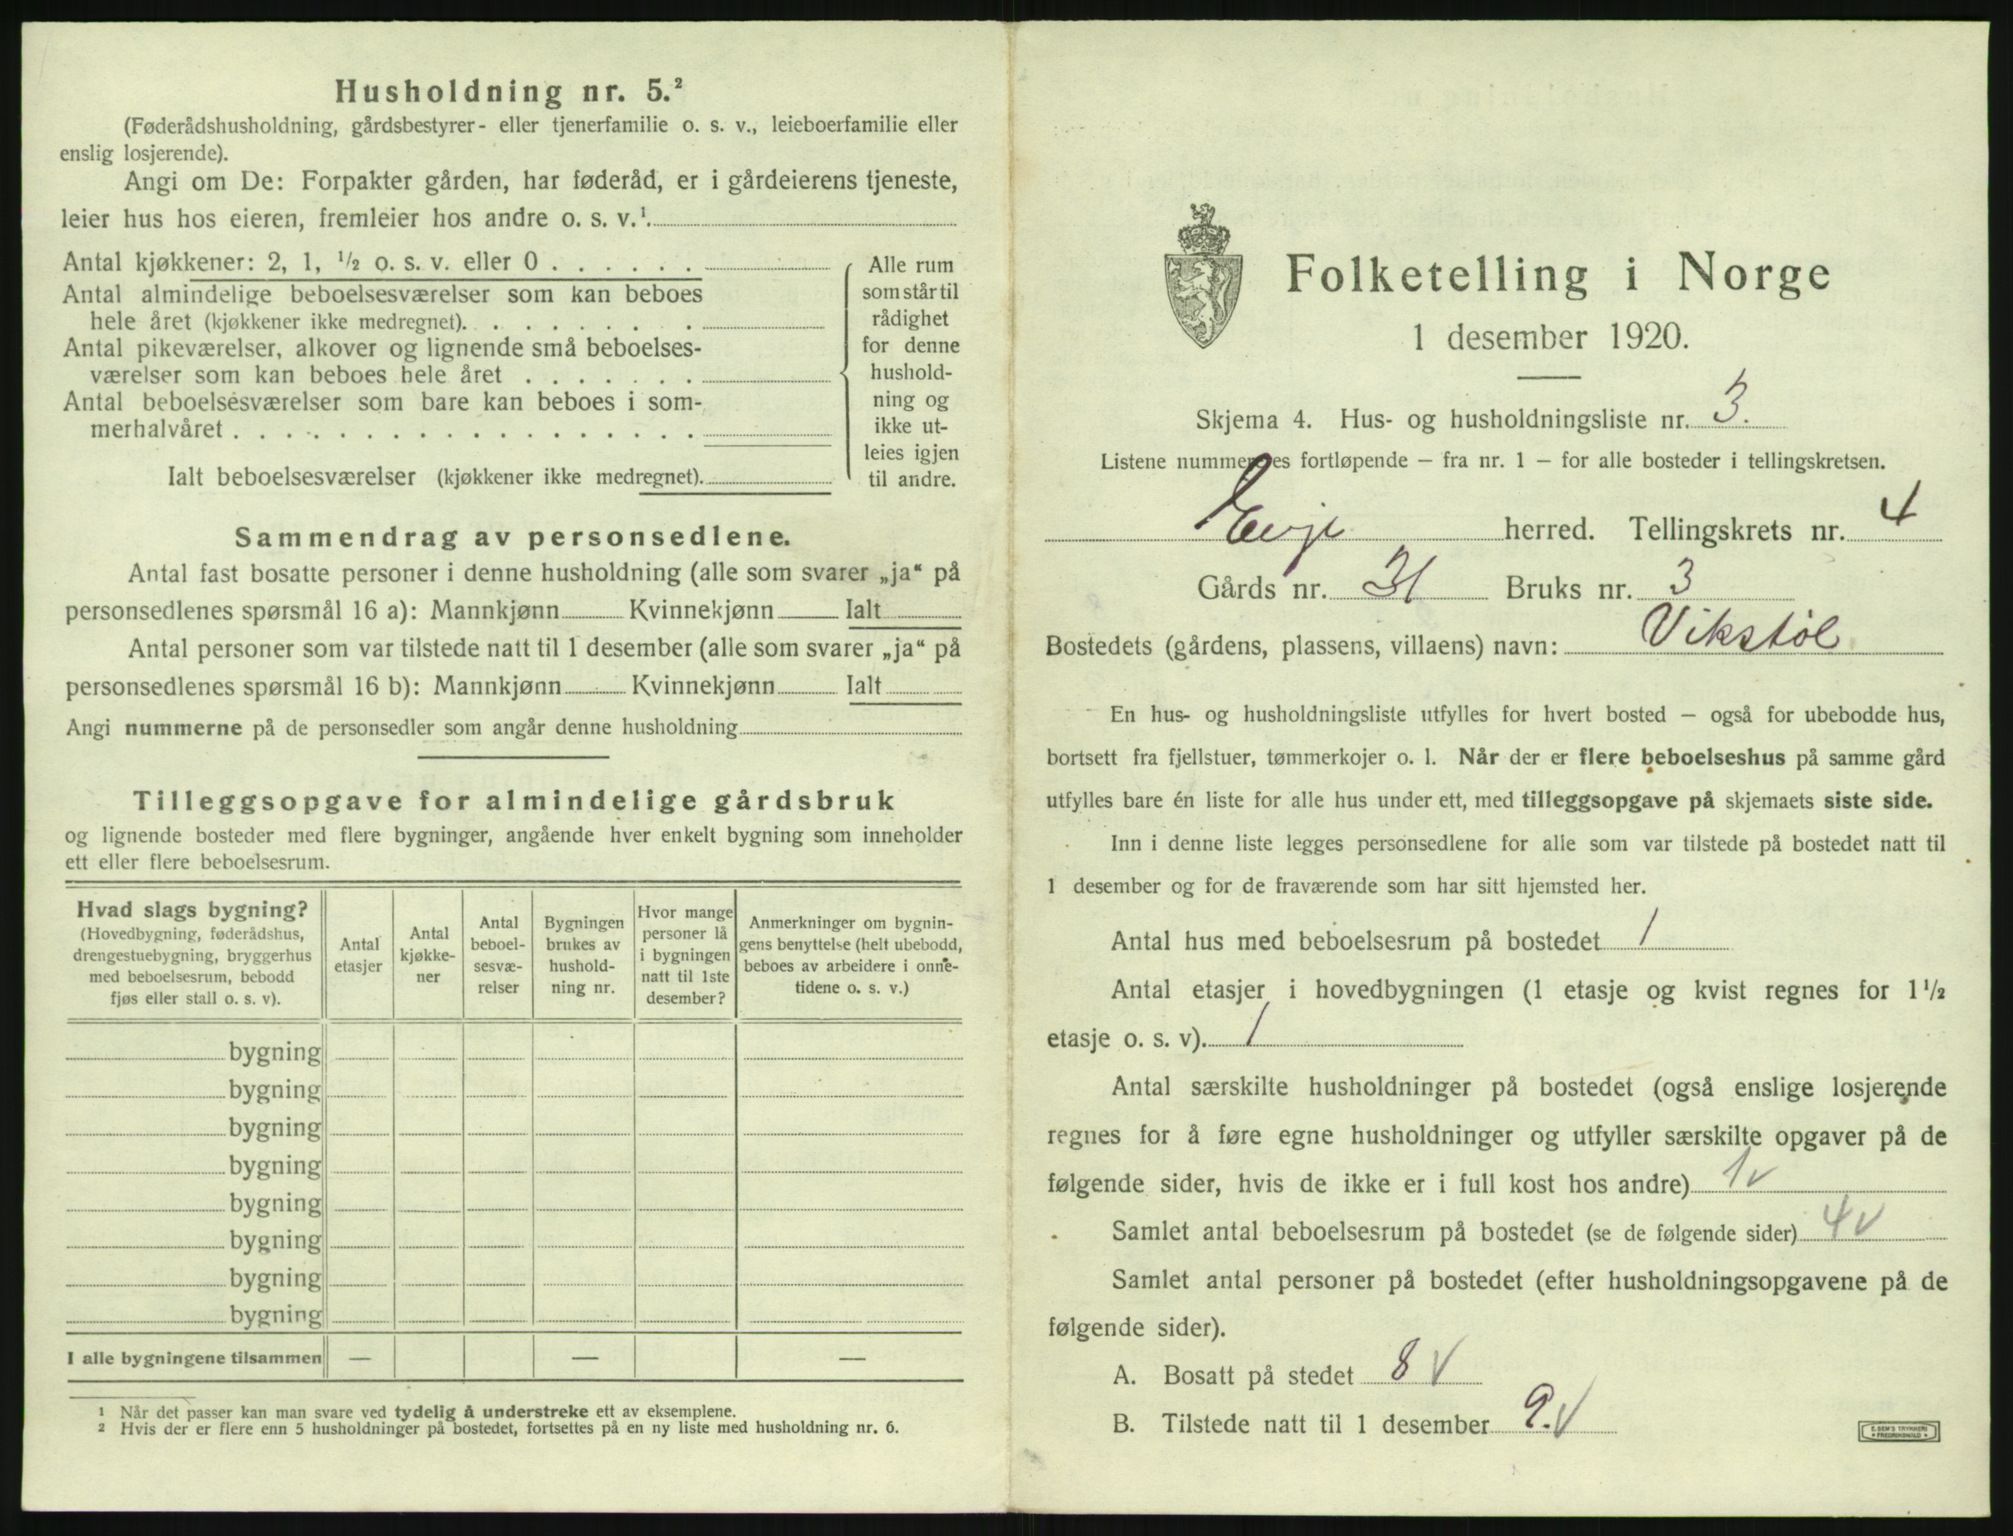 Husholdning nr. 5.²
(Føderådshusholdning, gårdsbestyrer- eller tjenerfamilie o. s. v., leieboerfamilie eller
enslig losjerende).
Angi om De: Forpakter gården, har føderåd, er i gårdeierens tjeneste,
leier hus hos eieren, fremleier hos andre o. s. v.¹
Antal kjøkkener: 2, 1, ½ o. s. v. eller 0 . . . . . .
Antal almindelige beboelsesværelser som kan beboes
hele året (kjøkkener ikke medregnet). . . . . . . . .
Antal pikeværelser, alkover og lignende små beboelses-
værelser som kan beboes hele året . . . . . . .
Antal beboelsesværelser som bare kan beboes i som-
merhalvåret . . . . . . . . . . . . . . . . . .
Ialt beboelsesværelser (kjøkkener ikke medregnet).
Alle rum
som står til
rådighet
for denne
hushold-
ning og
ikke ut-
leies igjen
til andre.
Sammendrag av personsedlene.
Antal fast bosatte personer i denne husholdning (alle som svarer „ja“ på
personsedlenes spørsmål 16 a): Mannkjønn Kvinnekjønn Ialt
Antal personer som var tilstede natt til 1 desember (alle som svarer „ja“ på
personsedlenes spørsmål 16 b): Mannkjønn Kvinnekjønn Ialt
Angi nummerne på de personsedler som angår denne husholdning
Tilleggsopgave for almindelige gårdsbruk
og lignende bosteder med flere bygninger, angående hver enkelt bygning som inneholder
ett eller flere beboelsesrum.
Hvad slags bygning?
(Hovedbygning, føderådshus,
drengestuebygning, bryggerhus
med beboelsesrum, bebodd
fjøs eller stall o. s. v).
Antal
etasjer
Antal
kjøkke-
ner
Antal
beboel-
sesvæ-
relser
Bygningen
brukes av
hushold-
ning nr.
Hvor mange
personer lå
i bygningen
natt til 1ste
desember?
Anmerkninger om bygnin-
gens benyttelse (helt ubebodd,
beboes av arbeidere i onne-
tidene o. s. v.)
bygning
bygning
bygning
bygning
bygning
bygning
bygning
bygning
I alle bygningene tilsammen — — —
¹ Når det passer kan man svare ved tydelig å understreke ett av eksemplene.
² Hvis der er flere enn 5 husholdninger på bostedet, fortsettes på en ny liste med husholdning nr. 6.
Folketelling i Norge
1 desember 1920.
Skjema 4. Hus- og husholdningsliste nr. 3.
Listene nummereres fortløpende — fra nr. 1 — for alle bosteder i tellingskretsen.
Evje herred. Tellingskrets nr. 4
Gårds nr. 31 Bruks nr. 3
Bostedets (gårdens, plassens, villaens) navn: Vikstøl
En hus- og husholdningsliste utfylles for hvert bosted — også for ubebodde hus,
bortsett fra fjellstuer, tømmerkojer o. l. Når der er flere beboelseshus på samme gård
utfylles bare én liste for alle hus under ett, med tilleggsopgave på skjemaets siste side.
Inn i denne liste legges personsedlene for alle som var tilstede på bostedet natt til
1 desember og for de fraværende som har sitt hjemsted her.
Antal hus med beboelsesrum på bostedet 1
Antal etasjer i hovedbygningen (1 etasje og kvist regnes for 1½
etasje o. s. v). 1
Antal særskilte husholdninger på bostedet (også enslige losjerende
regnes for å føre egne husholdninger og utfyller særskilte opgaver på de
følgende sider, hvis de ikke er i full kost hos andre) 1 v
Samlet antal beboelsesrum på bostedet (se de følgende sider) 4 v
Samlet antal personer på bostedet (efter husholdningsopgavene på de
følgende sider).
A. Bosatt på stedet 8 v
B. Tilstede natt til 1 desember 9. v
E. SEM'S TRYKKERI
FREDRIKSHALD